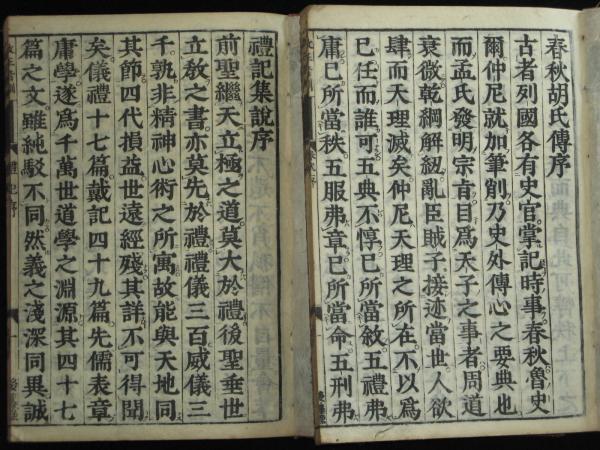 春秋胡氏傳序
古者列國各有史官掌記時事春秋魯史
爾仲尼就加筆削乃史外傳心之要典也
而孟氏發明宗旨目爲天子之事者周道
衰微乾綱解紐亂臣賊子接迹當世人欲
肆而天理滅矣仲尼天理之所在不以爲
已任而誰可五典不惇已所當敘五禮弗
庸已所當秩五服弗章已所當命五刑弗
禮記集說序
前聖繼天立極之道莫大於禮後聖垂世
立敎之書亦莫先於禮禮儀三百威儀三
千孰非精神心術之所寓故能與天地同
其節四代損益世遠經殘其詳不可得聞
矣儀禮十七篇戴記四十九篇先儒表章
庸學遂爲千萬世道學之淵源其四十七
篇之文雖純駁不同然義之淺深同異誠
禮記序